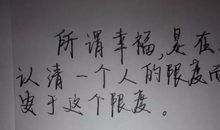 所谓幸福，是在
认清一个人的限度而
安于这个限度。